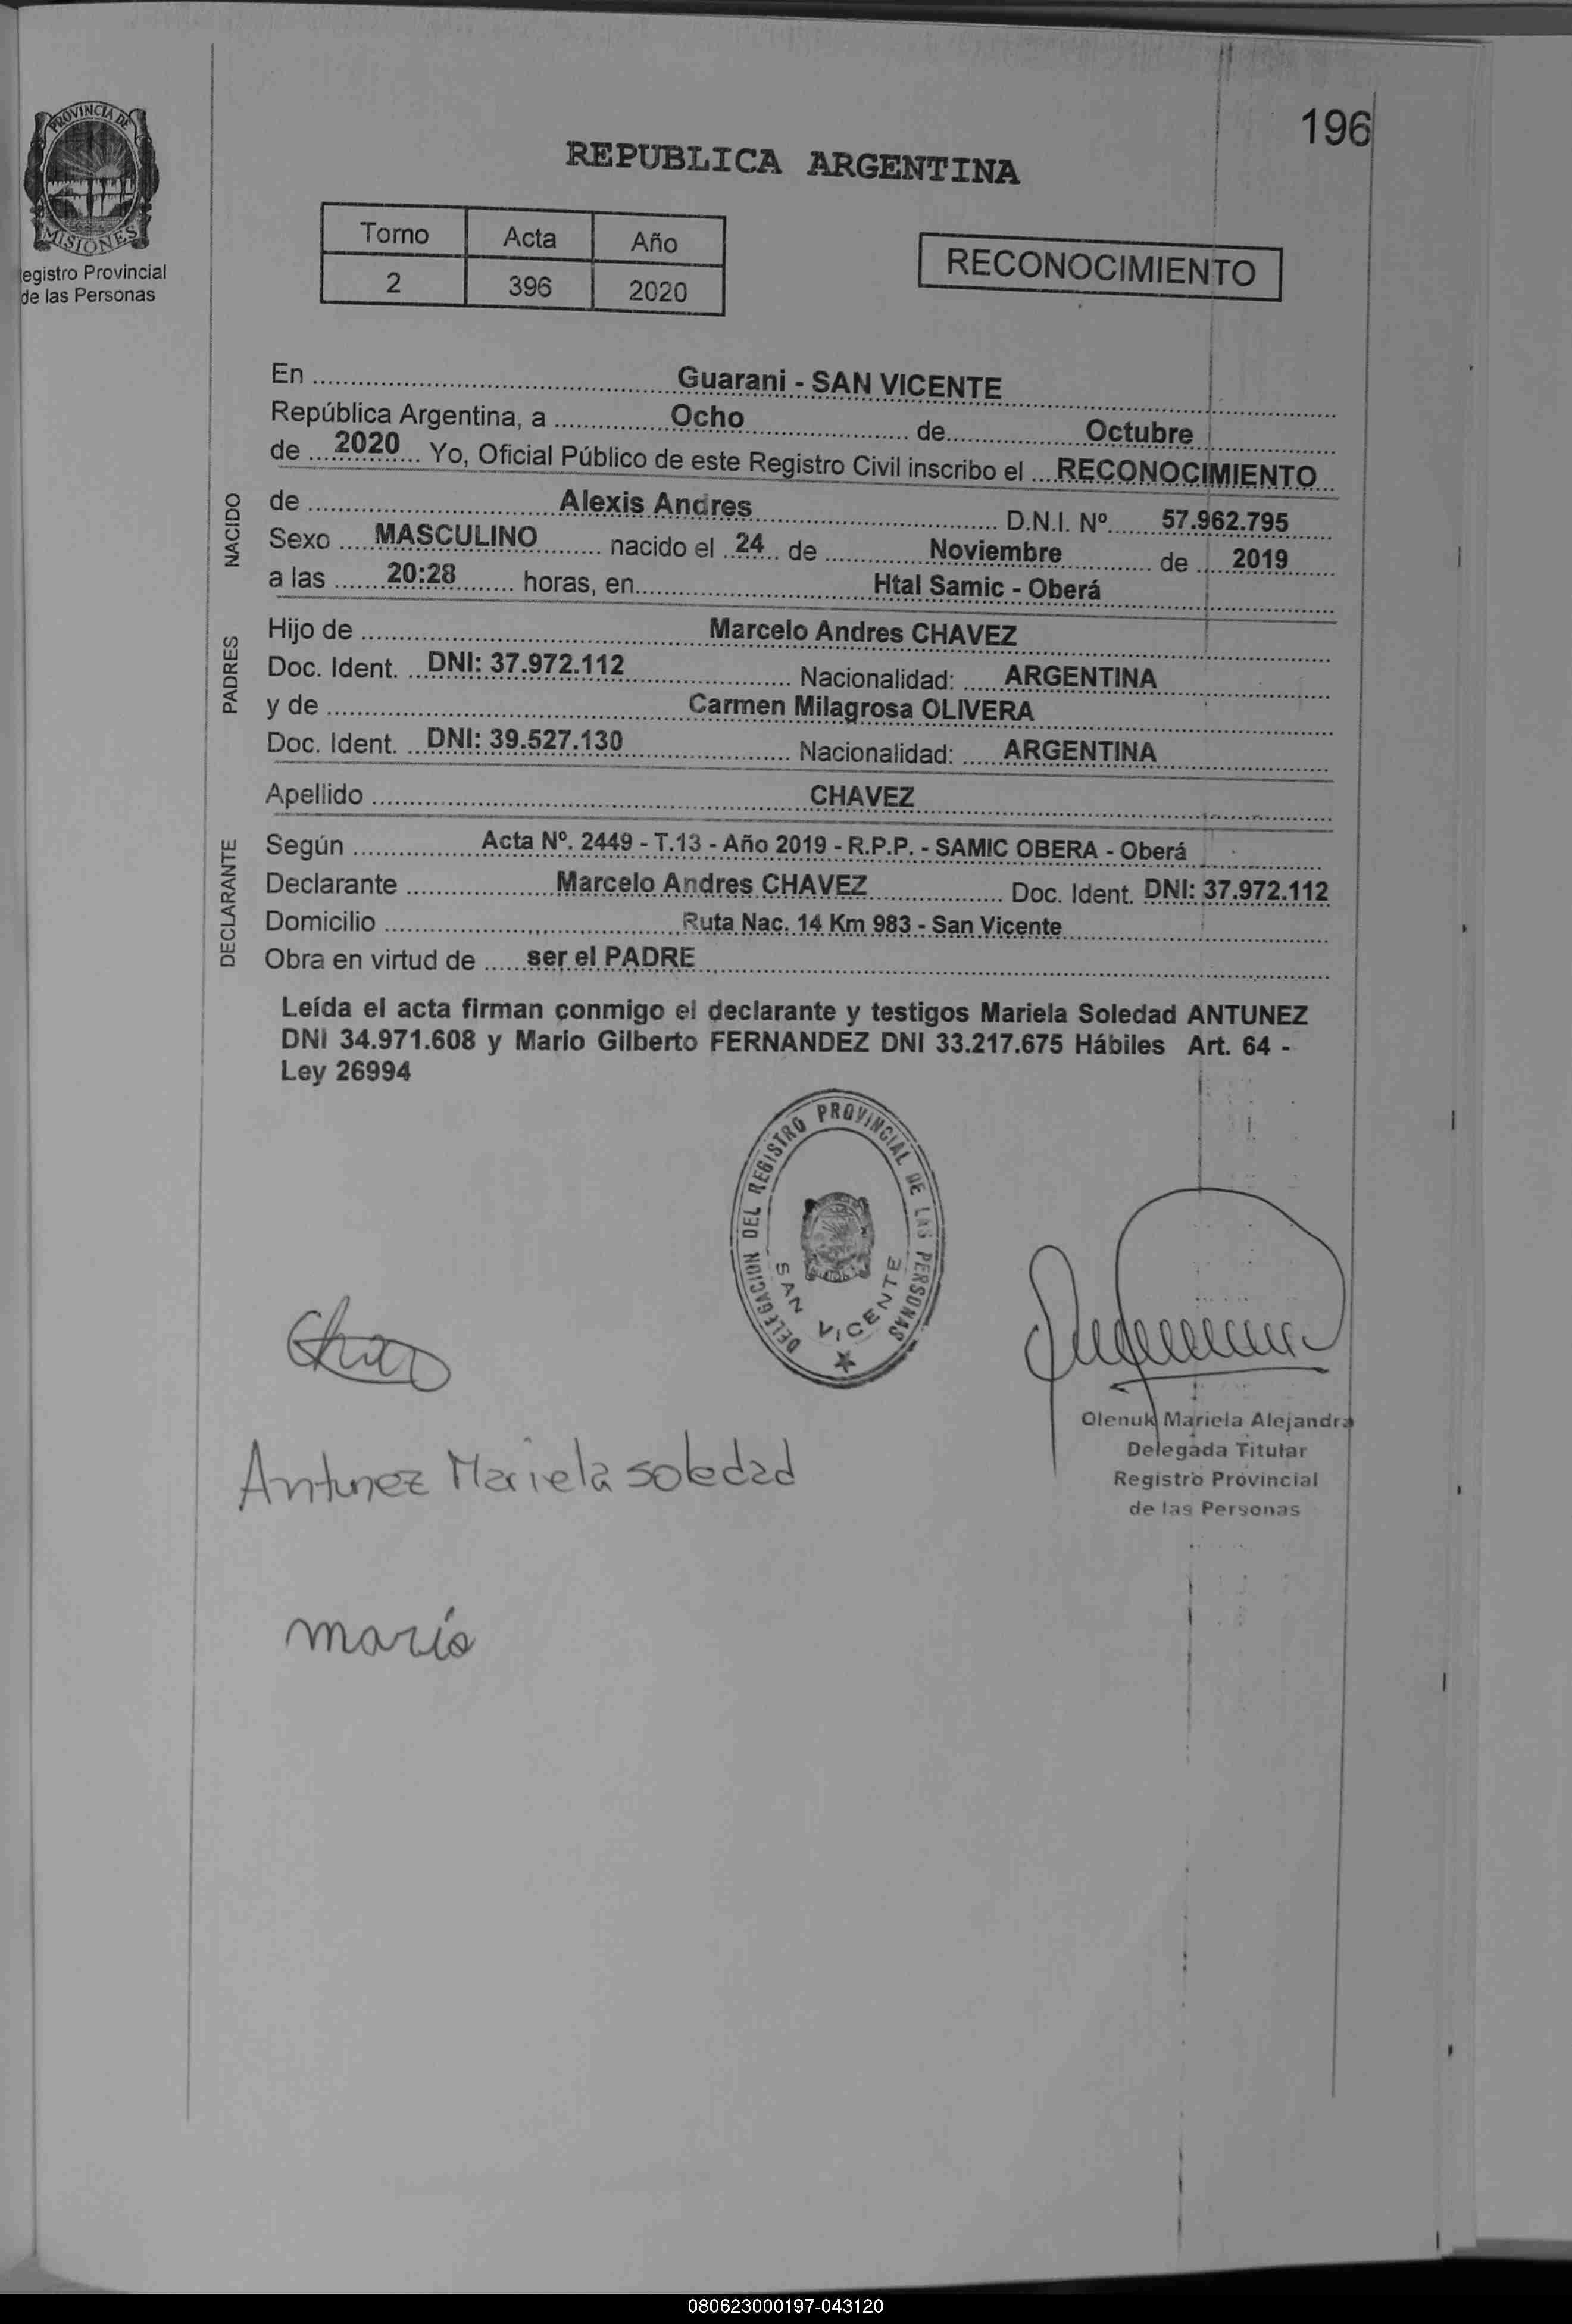 196
PROVINCIA DE
MISIONES
egistro Provincial
de las Personas
REPUBLICA ARGENTINA
Tomo Acta Año
2 396 2020
RECONOCIMIENTO
En Guarani - SAN VICENTE
República Argentina, a Ocho de Octubre
de 2020 Yo, Oficial Público de este Registro Civil inscribo el RECONOCIMIENTO
NACIDO
de Alexis Andres D.N.I. Nº 57.962.795
Sexo MASCULINO nacido el 24 de Noviembre de 2019
a las 20:28 horas, en Htal Samic - Oberá
PADRES
Hijo de Marcelo Andres CHAVEZ
Doc. Ident. DNI: 37.972.112 Nacionalidad: ARGENTINA
y de Carmen Milagrosa OLIVERA
Doc. Ident. DNI: 39.527.130 Nacionalidad: ARGENTINA
Apellido CHAVEZ
DECLARANTE
Según Acta Nº. 2449 - T.13 - Año 2019 - R.P.P. - SAMIC OBERA - Oberá
Declarante Marcelo Andres CHAVEZ Doc. Ident. DNI: 37.972.112
Domicilio Ruta Nac. 14 Km 983 - San Vicente
Obra en virtud de ser el PADRE
Leída el acta firman conmigo el declarante y testigos Mariela Soledad ANTUNEZ
DNI 34.971.608 y Mario Gilberto FERNANDEZ DNI 33.217.675 Hábiles Art. 64 -
Ley 26994
DELEGACION DEL REGISTRO PROVINCIAL DE LAS PERSONAS
SAN VICENTE
Olenuk Mariela Alejandra
Delegada Titular
Registro Provincial
de las Personas
Antunez Mariela Soledad
mario
080623000197-043120